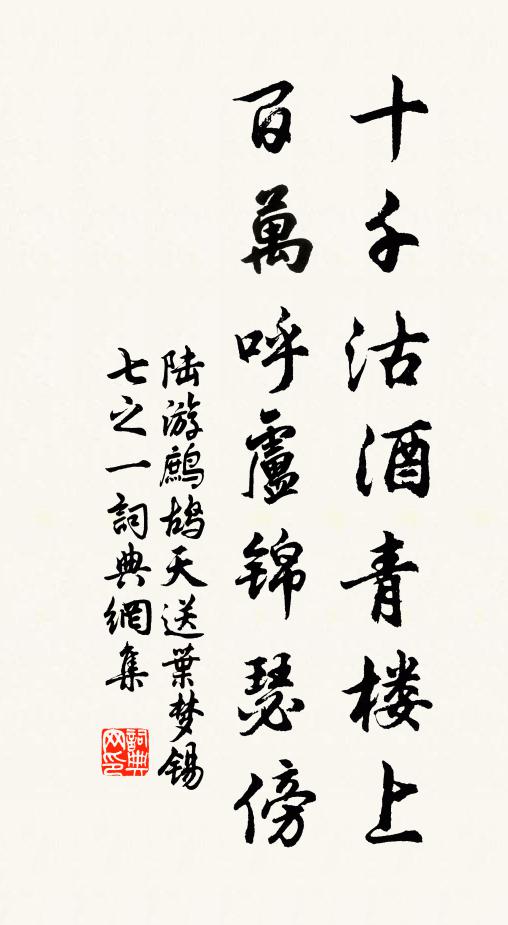 十千沽酒青楼上
百萬呼盧錦瑟傍
陆游鹧鸪天送葉梦锡
七之一詞典網集
詞典
网印